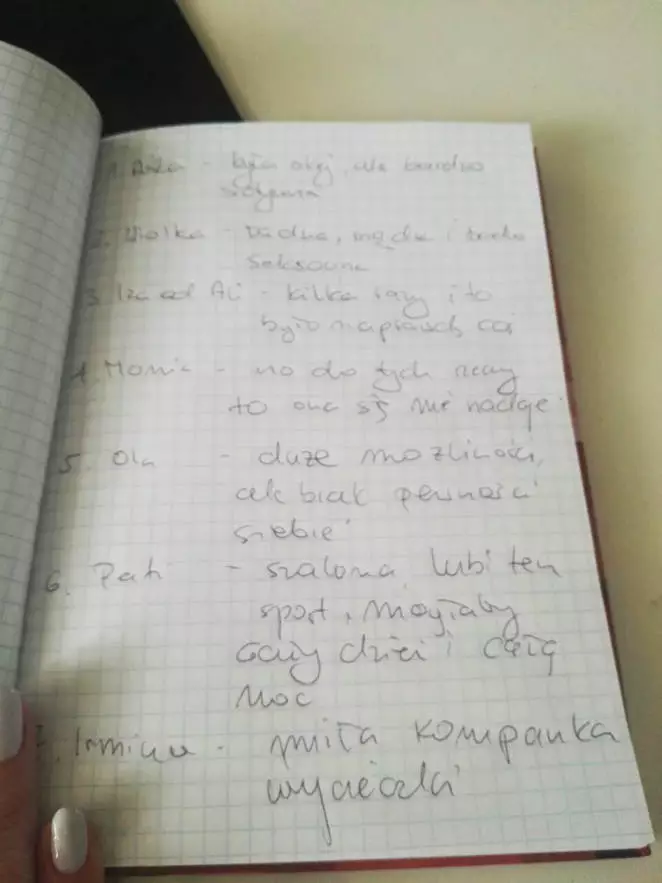 1. - była okej, ale bardzo
sztywna
2. Wiolka - ładna, mądra i
seksowna
3. Iza od Ali - kilka razy i to
było naprawdę coś
4. Monia - no do tych rzeczy
to ona się nie nadaje
5. Ola - duże możliwości,
ale brak pewności
siebie
6. Pati - szalona, lubi ten
sport, mogłaby
cały dzień i całą
noc
7. - miła kompanka
wycieczki